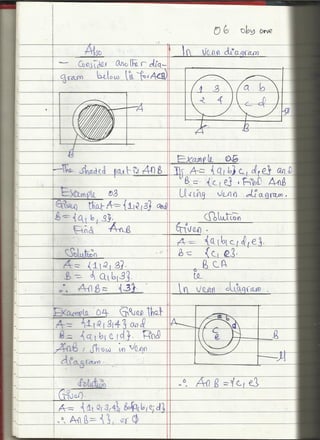 06 oby one
Also
- Consider another dia-
gram below (is for A⊂B)
A
B
- The shaded part is A∩B
Example 03
Given that A = {1,2,3} and
B = {a, b, 3}.
Find A∩B
Solution
A = {1,2,3}
B = {a,b,3}
∴ A∩B = {3}
Example 04 Given that
A = {1,2,3,4} and
B = {a,b,c,d}. Find
A∩B, show in venn
diagram
Solution
Given
A = {1,2,3,4} B={a,b,c,d}
∴ A∩B = { }, or ∅
In venn diagram
1 3
2 4
a b
c d
A
B
Example 05
If A = {a,b,c,d,e} and
B = {c,e}. Find A∩B
Using venn diagram.
Solution
Given.
A = {a,b,c,d,e}.
B = {c, e}.
B⊂A
ie
In venn diagram.
a b d
A
c
e
B
μ
∴ A∩B = {c, e}